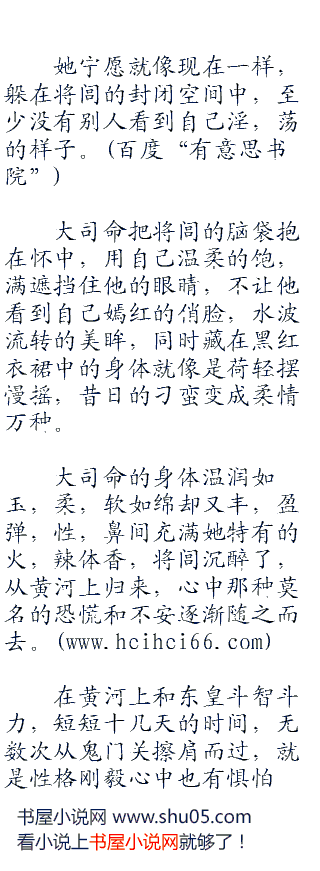 她宁愿就像现在一样，
躲在将闾的封闭空间中，至
少没有别人看到自己淫，荡
的样子。(百度“有意思书
院”)
大司命把将闾的脑袋抱
在怀中，用自己温柔的饱，
满遮挡住他的眼睛，不让他
看到自己嫣红的俏脸，水波
流转的美眸，同时藏在黑红
衣裙中的身体就像是荷轻摆
慢摇，昔日的刁蛮变成柔情
万种。
大司命的身体温润如
玉，柔，软如绵却又丰，盈
弹，性，鼻间充满她特有的
火，辣体香，将闾沉醉了，
从黄河上归来，心中那种莫
名的恐慌和不安逐渐随之而
去。(www.hcihci66.com)
在黄河上和东皇斗智斗
力，短短十几天的时间，无
数次从鬼门关擦肩而过，就
是性格刚毅心中也有惧怕
书屋小说网 www.shu05.com
看小说上书屋小说网就够了！